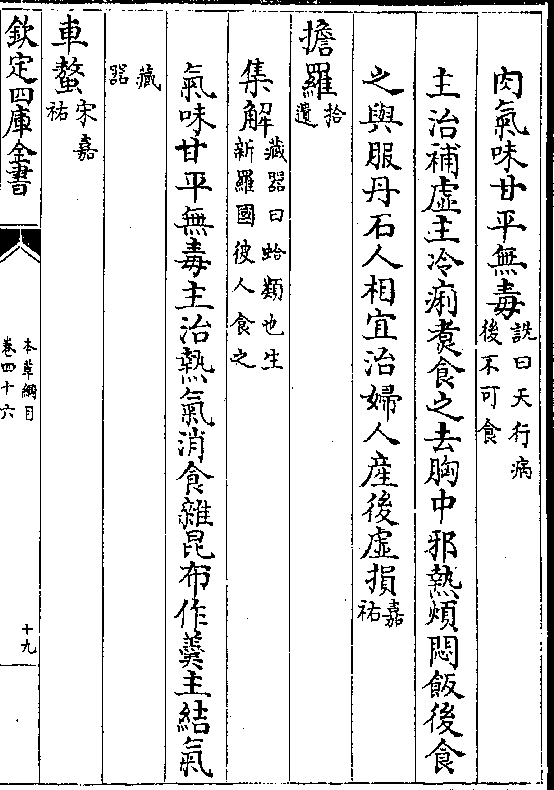 肉氣味甘平無毒詵曰天行病後不可食
主治補虛主冷痢煑食之去胸中邪熱煩悶飯後食
之與服丹石人相宜治婦人産後虛損嘉祐
擔羅拾遺
集解藏器曰蛤類也生新羅國彼人食之
氣味甘平無毒主治熱氣消食雜昆布作羹主結氣
藏器
車螯宋嘉祐
欽定四庫全書
本草綱目
卷四十六
十九